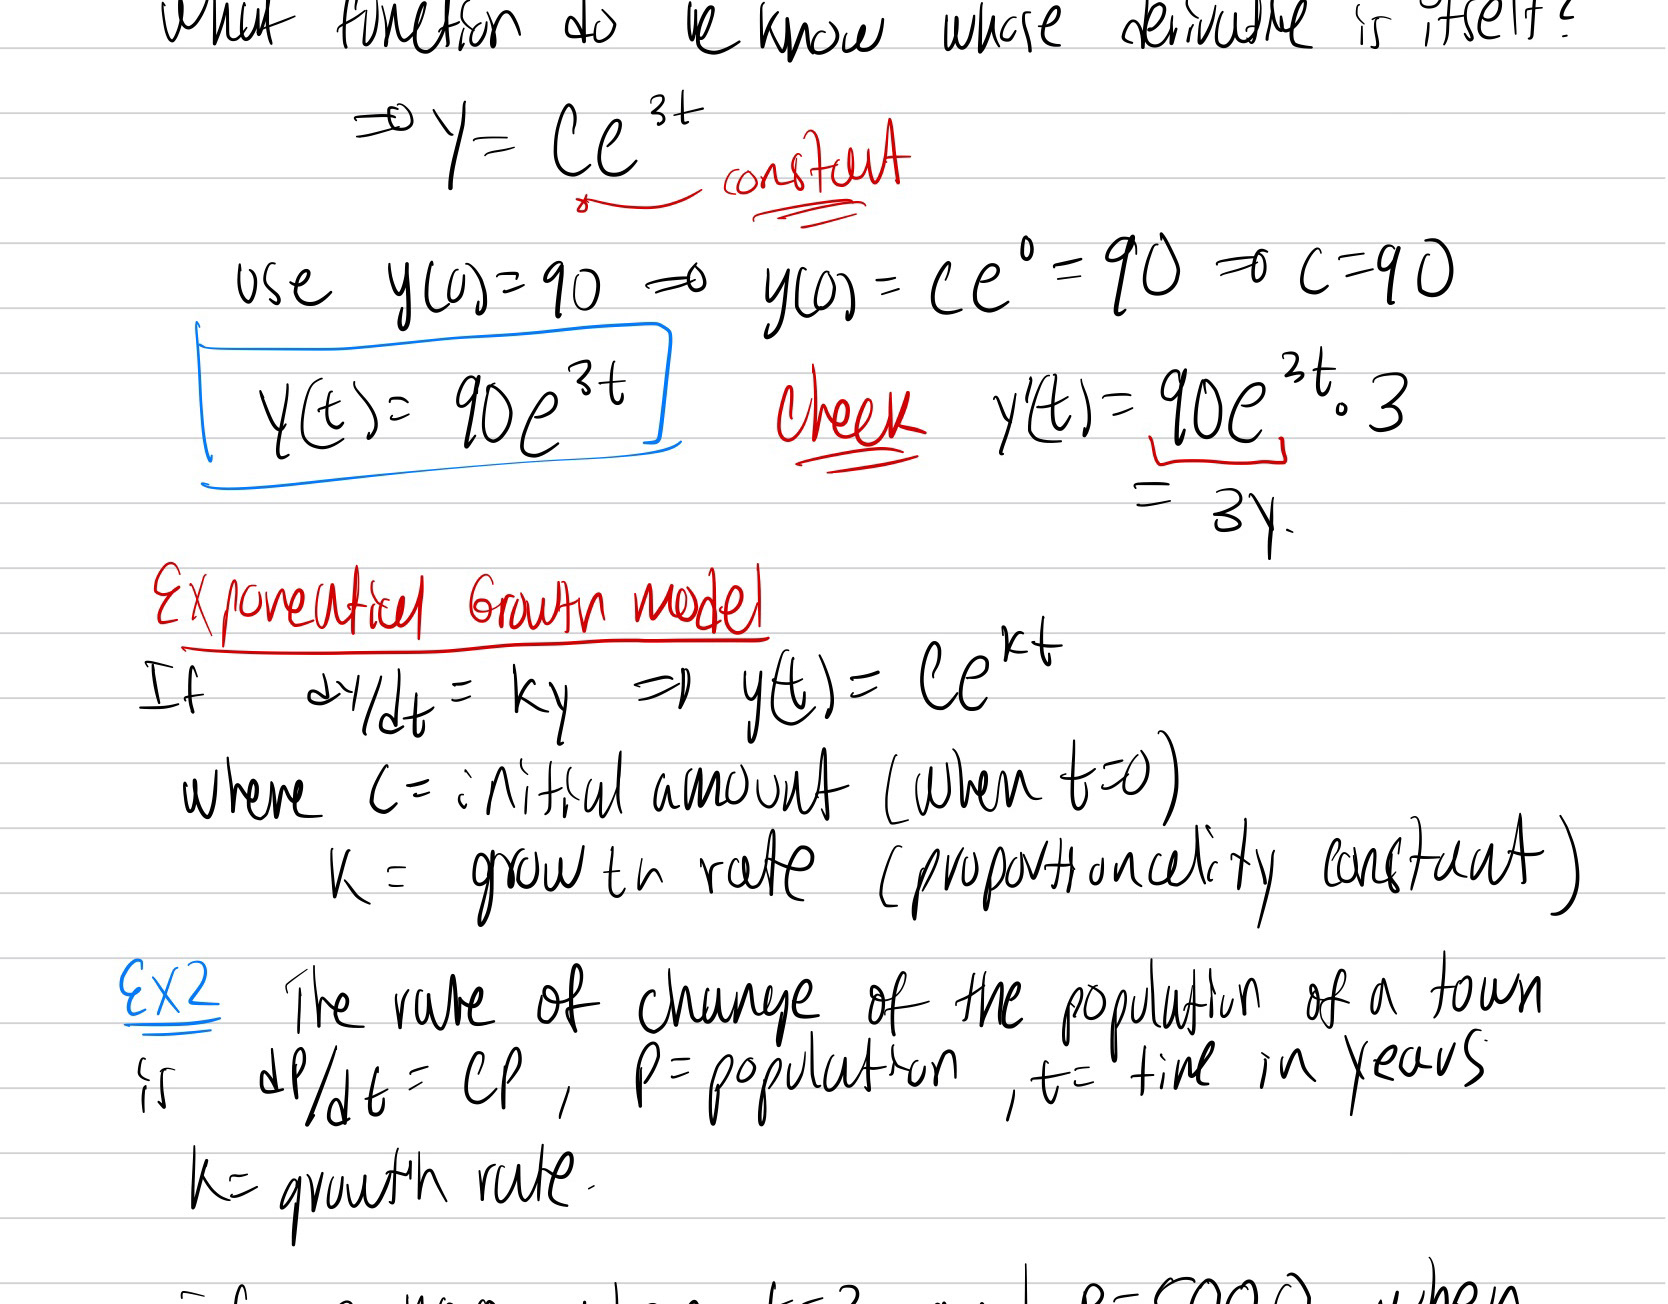 What function do we know whose derivative is itself?
⇒ y = Ce^{3t}
constant
use y(0)=90 ⇒ y(0) = Ce^0 = 90 ⇒ C=90
y(t) = 90e^{3t} check y'(t) = 90e^{3t} · 3
= 3y.
Exponential Growth model
If dy/dt = ky ⇒ y(t) = Ce^{kt}
where C = initial amount (when t=0)
K = growth rate (proportionality constant)
EX2 The rate of change of the population of a town
is dP/dt = CP, P = population, t = time in years
K = growth rate.
when